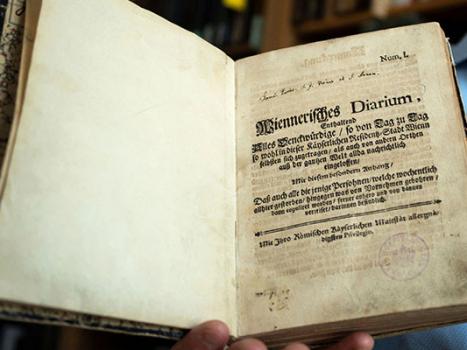 Num. I.
Wiennerisches Diarium,
Enthaltend
Alles Denckwürdige / so von Tag zu Tag
so wohl in dieser Käyserlichen Residentz-Stadt Wienn
selbsten sich zugetragen / als auch von andern Orthen
auß der gantzen Welt allda nachrichtlich
eingeloffen /
Mit diesem besondern Anhang /
Daß auch alle die jenige Persohnen / welche wochentlich
allhier gestorben / hingegen was von Vornehmen gebohren /
dann copuliret worden / ferner anhero und von dannen
verreiset / darinnen befindlich.
Mit Ihro Römischen Käyserlichen Majestät allergnä-
digstem Privilegio.